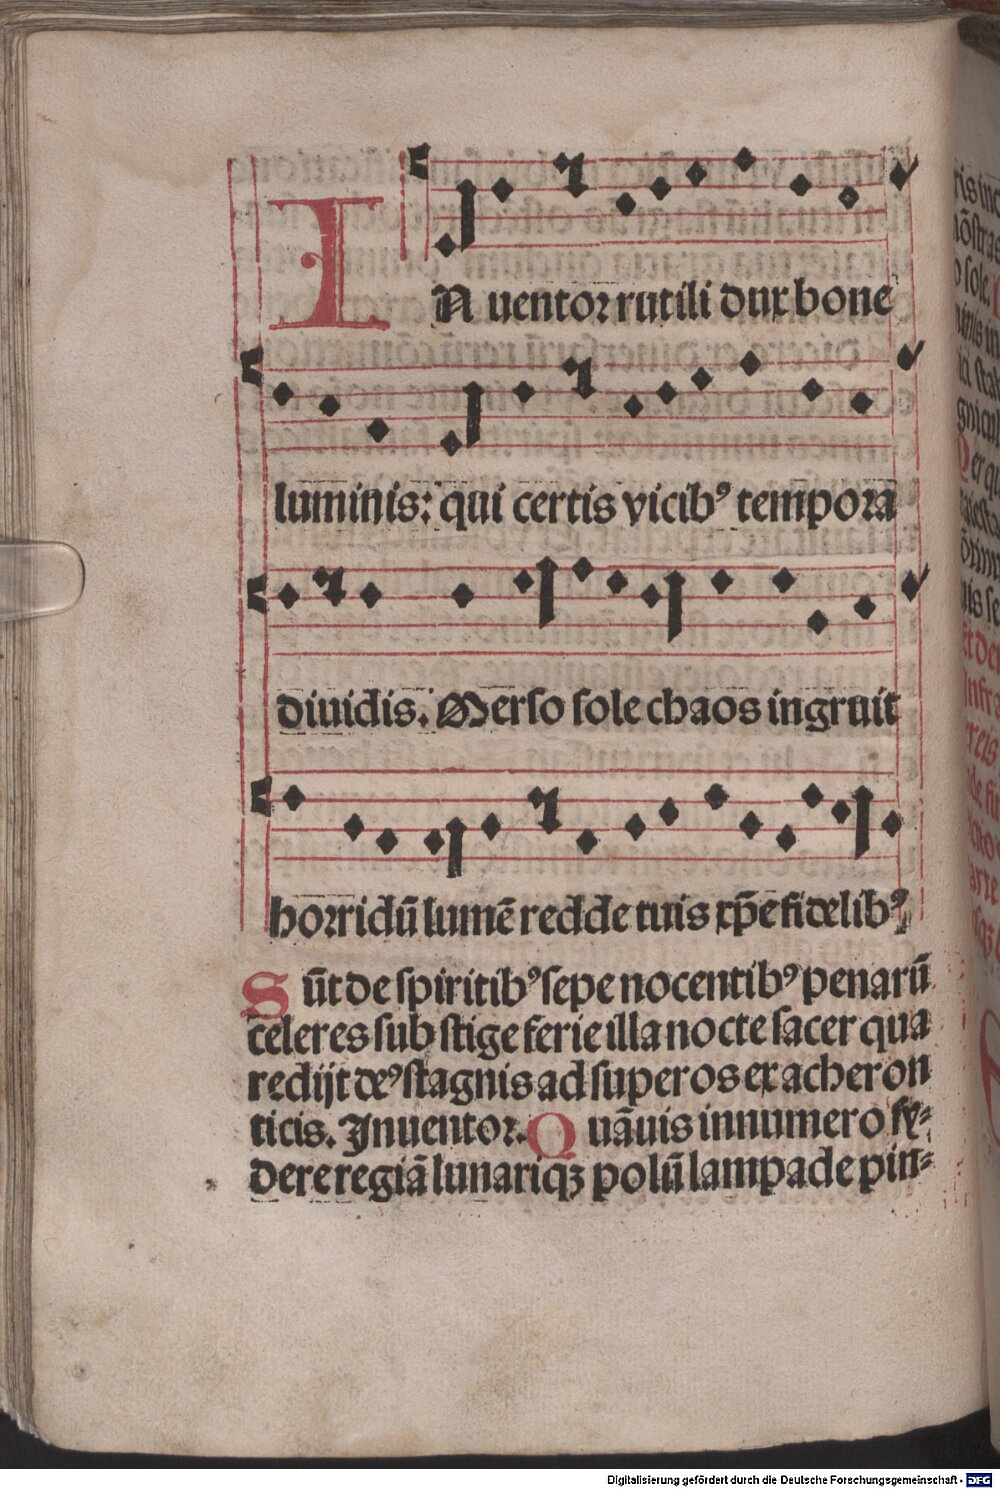 IN uentor rutili dux bone
luminis: qui certis vicibꝰ tempora
diuidis. Merso sole chaos ingruit
horridū lumē redde tuis xp̄e fidelibꝰ
Sūt de spiritibꝰ sepe nocentibꝰ penarū
celeres sub stige ferie illa nocte sacer qua
redijt deꝰ stagnis ad superos ex acheron
ticis. Inuentor. Quāuis innumero sy⸗
dere regiā lunariqꝫ polū lampade pin⸗
Digitalisierung gefördert durch die Deutsche Forschungsgemeinschaft - DFG